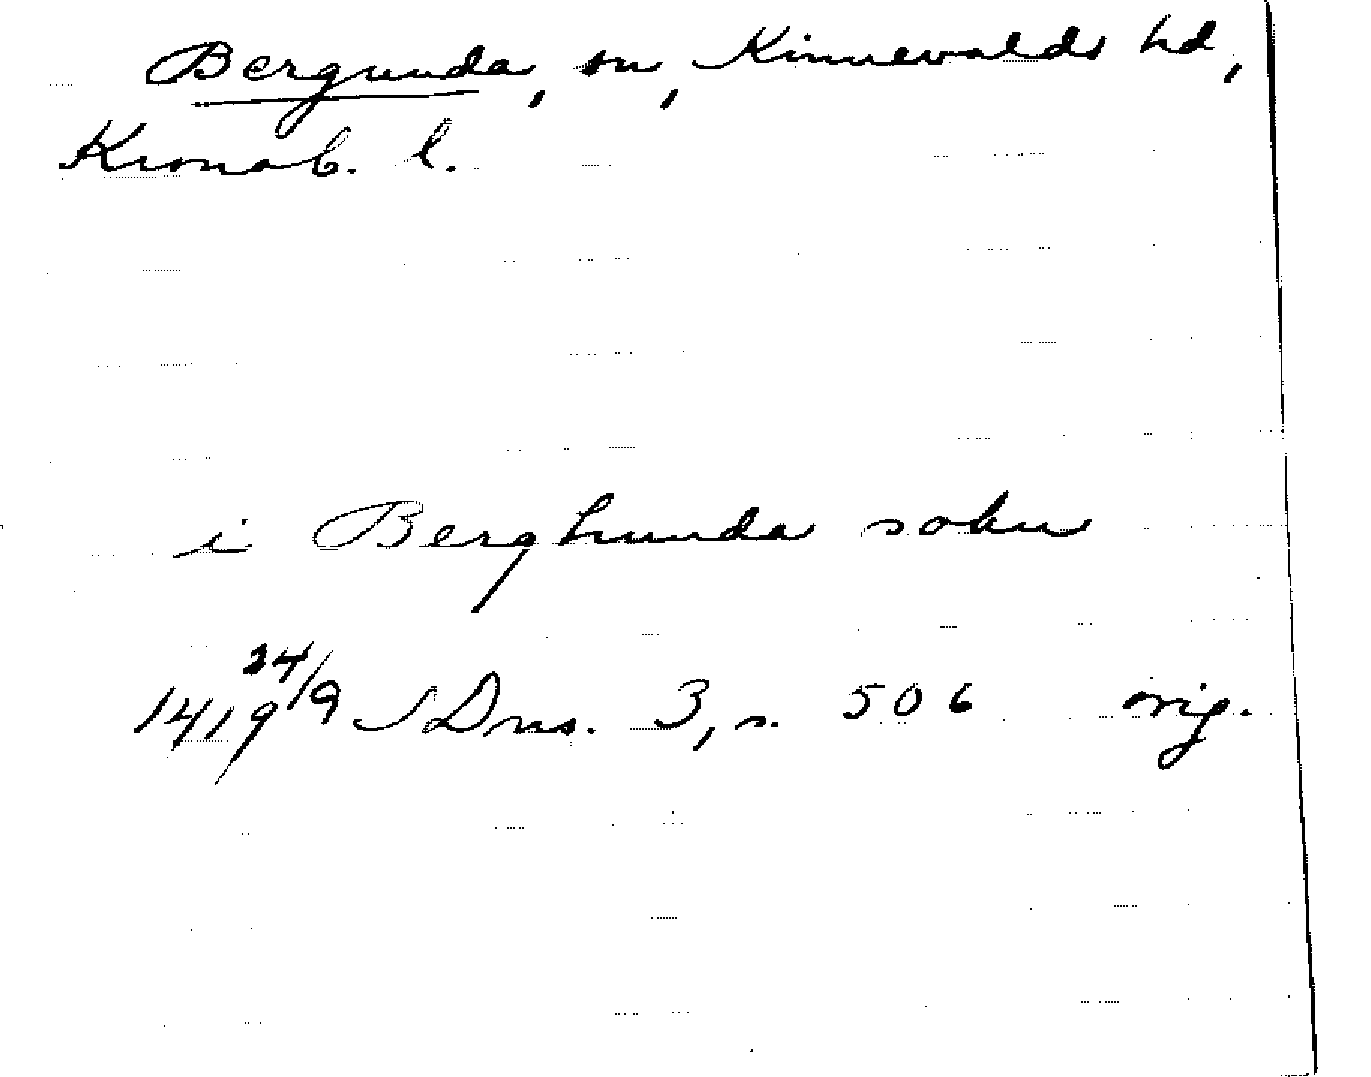 Bergunda, sn, Kinnevalds hd,
Kronob. l.
i Berghunda sokn
1419 24/9 SDns. 3, s. 506 orig.